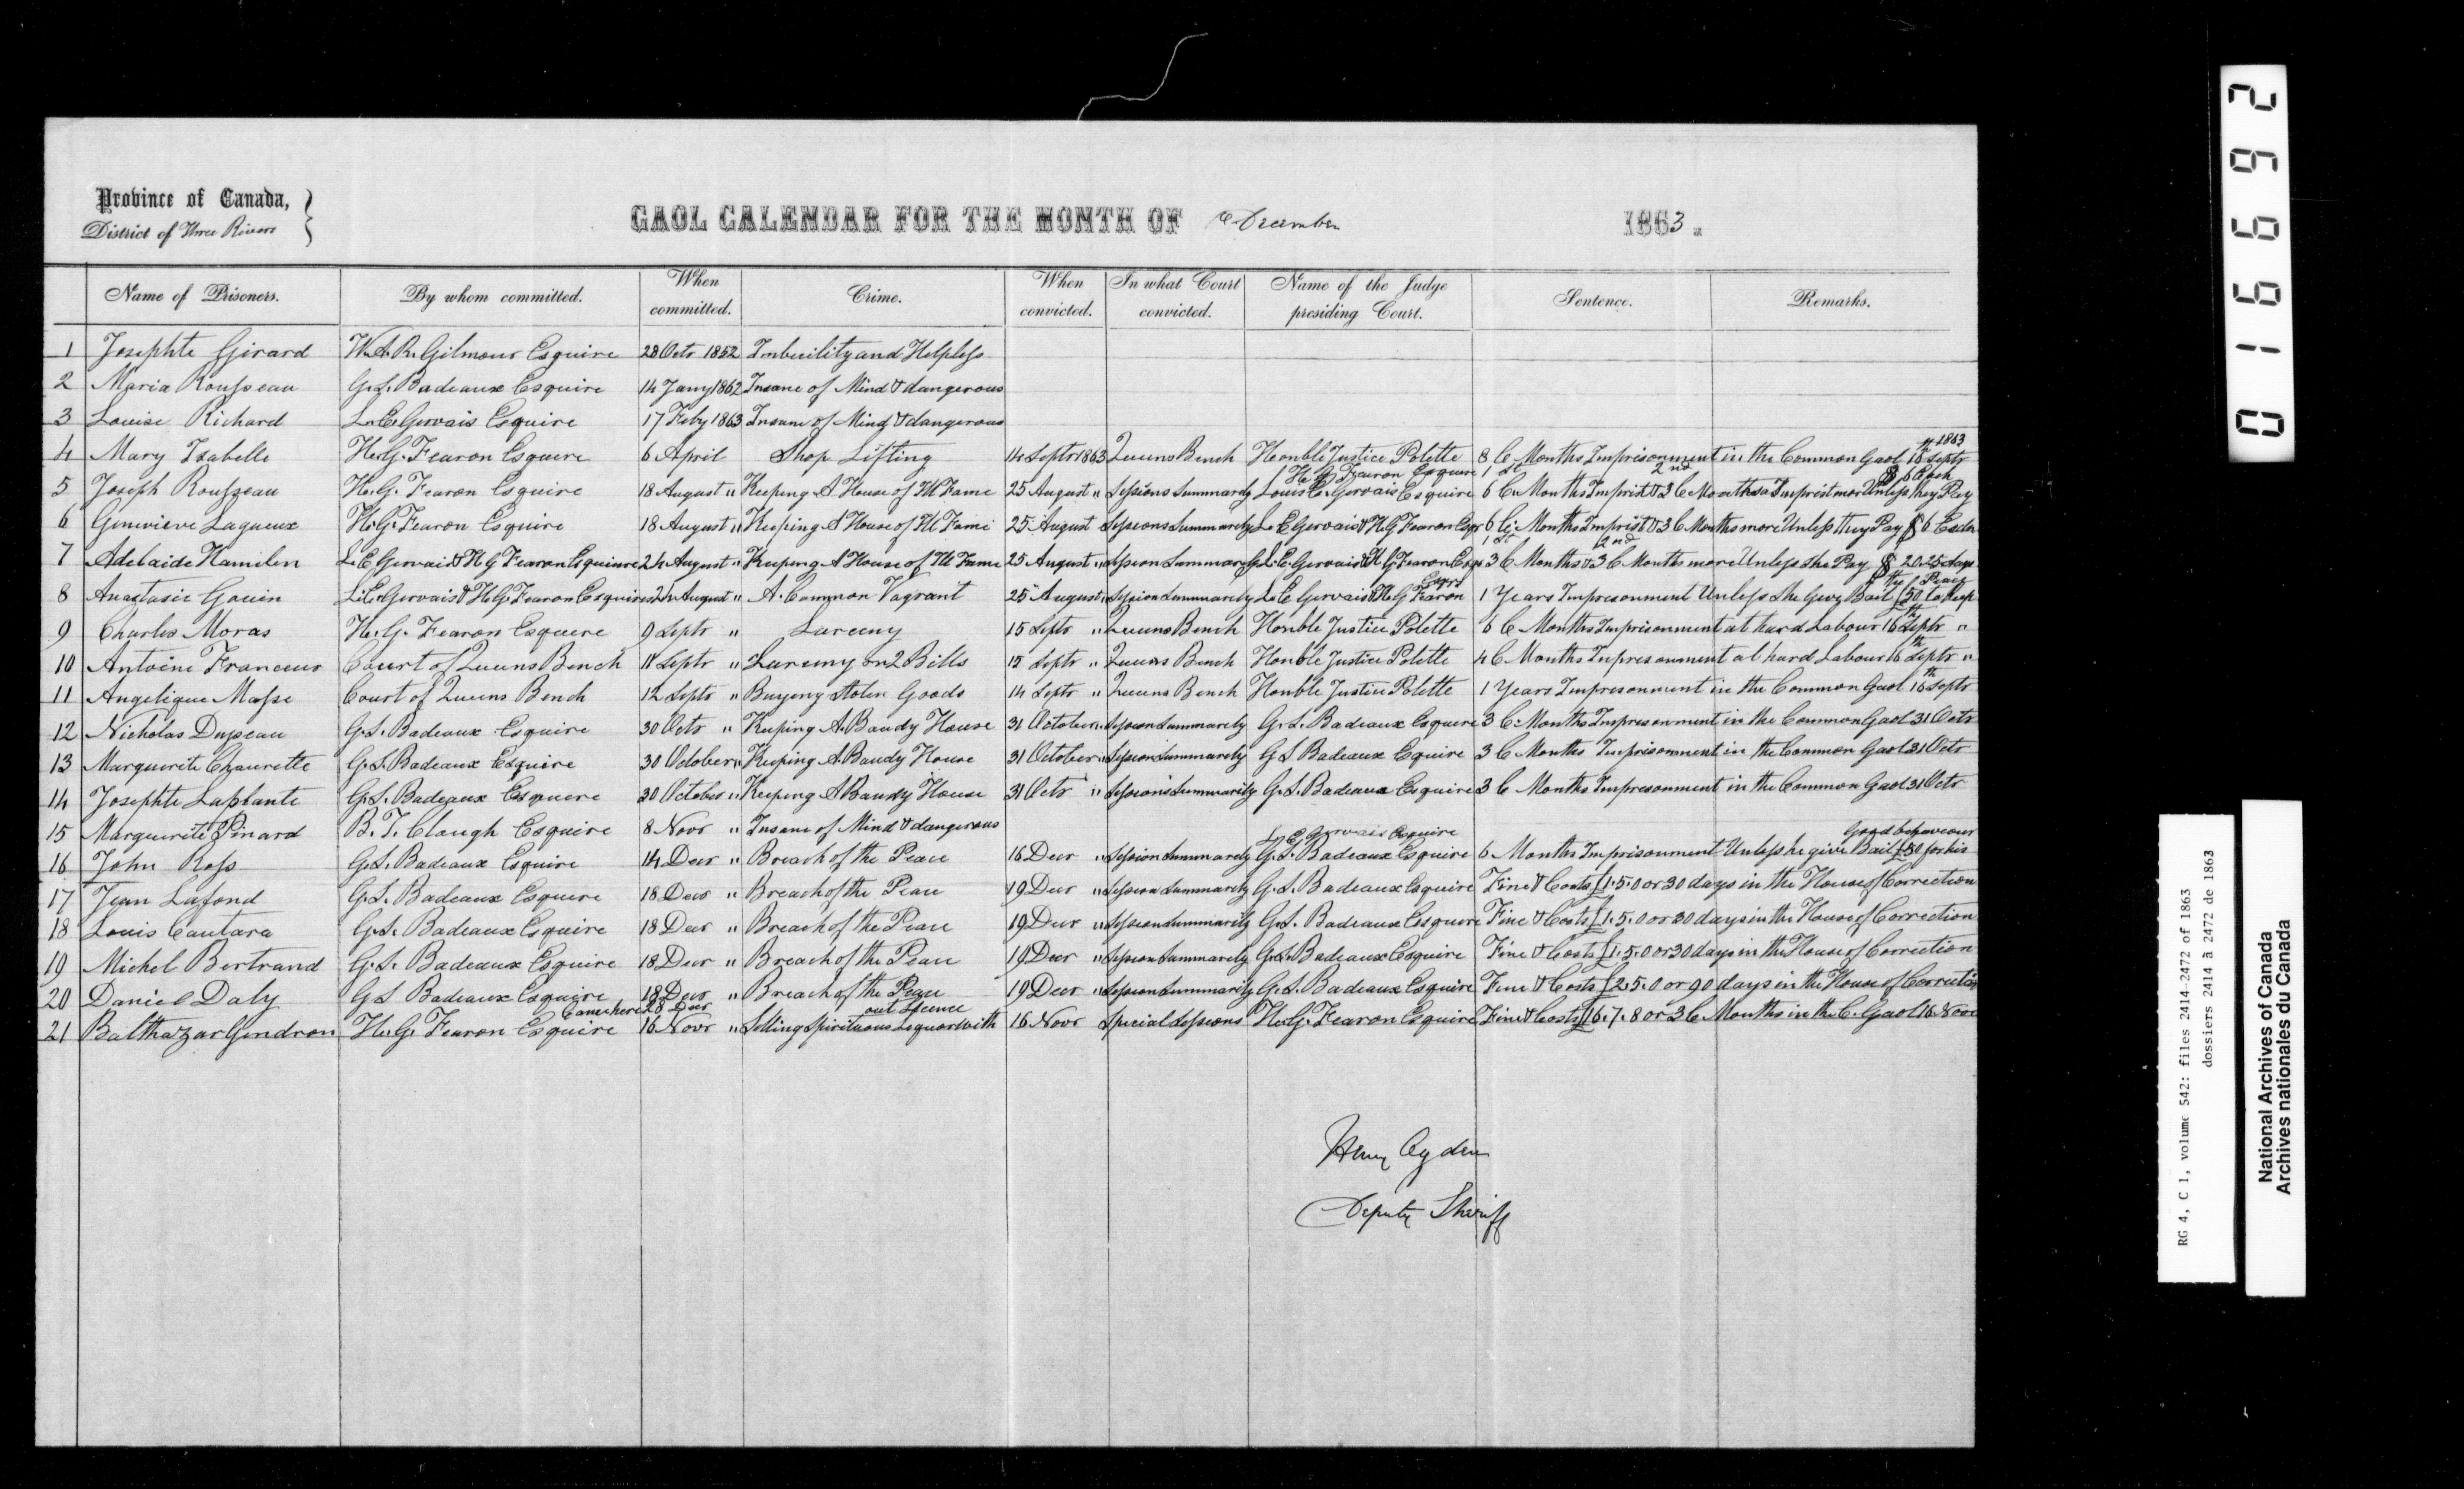 Province of Canada,
District of Three Rivers
GAOL CALENDAR FOR THE MONTH OF December 1863.
Name of Prisoners. By whom committed. When committed. Crime. When convicted. In what Court convicted. Name of the Judge presiding Court. Sentence. Remarks.
1 Josephte Girard W.A.R. Gilmour Esquire 28 Octr 1852 Imbecility and Helpless
2 Maria Rousseau G.S. Badeaux Esquire 14 Jany 1862 Insane of Mind & dangerous
3 Louise Richard L.E. Gervais Esquire 17 Feby 1863 Insane of Mind & dangerous
4 Mary Isabelle H.G. Fearon Esquire 6 April Shop Lifting 14 Septr 1863 Queens Bench Honble Justice Polette 8 C Months Imprisonment in the Common Gaol 16th Septr 1863
5 Joseph Rousseau H.G. Fearon Esquire 18 August " Keeping A House of Ill Fame 25 August " Sessions Summarely H.G. Fearon Esquire Louis E. Gervais Esquire 1st 6 C. Months Imprist & 2nd 3 C Months Imprist mor Unless they Pay $6 Each
6 Genevieve Lagueux H.G. Fearon Esquire 18 August " Keeping A House of Ill Fame 25 August Sessions Summarely L.E Gervais & H.G Fearon Esqr 6 C. Months Imprist & 3 C Months more Unless they Pay $6 Each
7 Adelaide Hamilen L.E Gervais & H G Fearon Esquires 24 August " Keeping A House of Ill Fame 25 August " Session Summarely L.E Gervais & H G Fearon Esqr 1st 3 C Months & 2nd 3 C Months more Unless she Pay $ 20. 25 days
8 Anastasie Gouin L.E. Gervais & H.G. Fearon Esquires 24 August " A. Common Vagrant 25 August " Session Summarely L.E Gervais & H G Fearon Esqrs 1 Years Impresonment Unless She Give Bail £50 to Keep the Peace
9 Charles Moras H.G. Fearon Esquere 9 Septr " Larceny 15 Septr " Queens Bench Honble Justice Polette 6 C Months Imprisonment at hard Labour 16th Septr "
10 Antoine Francoeur Court of Queens Bench 11 Septr " Larceny on 2 Bills 15 Septr " Queens Bench Honble Justice Polette 4 C Months Impresonment at hard Labour 16th Septr "
11 Angelique Masse Court of Queens Bench 12 Septr " Buyeng Stolen Goods 14 Septr " Queens Bench Honble Justice Polette 1 Years Impresonment in the Common Gaol 16th Septr
12 Nicholas Duseau G.S. Badeaux Esquire 30 Octr " Keeping A. Baudy House 31 October " Session Summarely G.S. Badeaux Esquere 3 C. Months Impresonment in the Common Gaol 31 Octr
13 Marguerite Chaurette G.S. Badeaux Esquire 30 October " Keeping A. Baudy House 31 October " Session Summarely G S Badeaux Equire 3 C Months Imprisonment in the Common Gaol 31 Octr
14 Josephte Laplante G.S. Badeaux Esquere 30 October " Keeping A Baudy House 31 Octr " Session's Summarily G.S. Badeaux Esquire 3 C Months Impresonment in the Common Gaol 31 Octr
15 Marguerite Pinard B.T. Clough Esquire 8 Novr " Insane of Mind & dangerous
16 John Ross G.S. Badeaux Esquire 14 Decr " Breach of the Peace 16 Decr " Session Summarely L.E. Gervais Esquire G.S. Badeaux Esquire 6 Months Imprisonment Unless he give Bail £50 for his Good behaveour
17 Jean Lafond G.S. Badeaux Esquere 18 Decr " Breach of the Peace 19 Decr " Session Summarely G.S. Badeaux Esquire Fine & Costs £1.5.0 or 30 days in the House of Correction
18 Louis Cantara G.S. Badeaux Esquire 18 Decr " Breach of the Peace 19 Decr " Session Summarily G.S. Badeaux Esquere Fine & Costs £1.5.0 or 30 days in the House of Correction
19 Michel Bertrand G.S. Badeaux Esquire 18 Decr " Breach of the Peace 19 Decr " Session Summarely G.S. Badeaux Esquire Fine & Costs £1.5.0 or 30 days in the House of Correction
20 Daniel Daly G S Badeaux Esquire 18 Decr " Breach of the Peace 19 Decr " Session Summarily G.S. Badeaux Esquire Fine & Costs £2.5.0 or 90 days in the House of Correction
21 Balthazar Gendron H.G. Fearon Esquire Came here 28 Decr 16 Novr " Selling Spirituous Liquor without Licence 16 Novr Special Sessions H.G. Fearon Esquire Fine & Costs £16.7.8 or 3 C Months in the C. Gaol 16 Novr
Henry Ogden
Deputy Sheriff
016692
RG 4, C 1, volume 542: files 2414-2472 of 1863
dossiers 2414 à 2472 de 1863
National Archives of Canada
Archives nationales du Canada